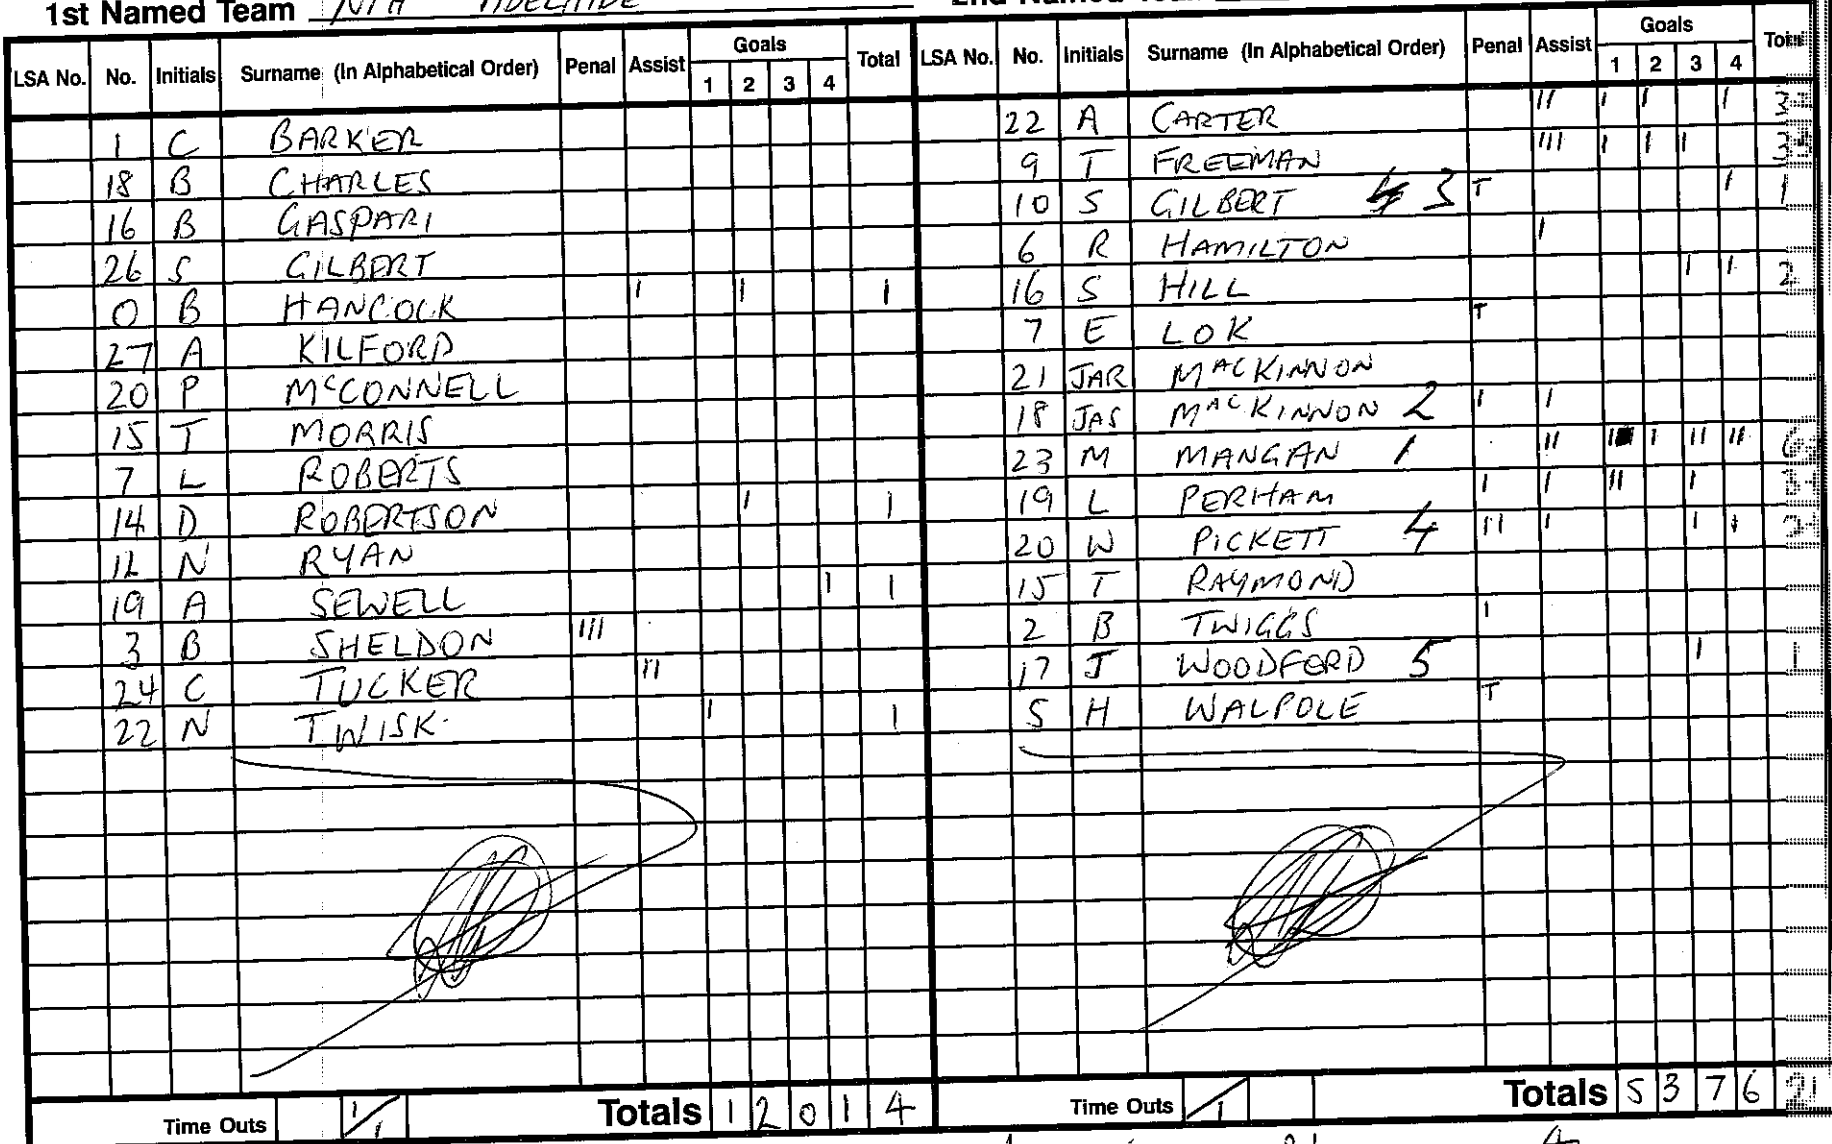 1st Named Team ADELAIDE
LSA No. No. Initials Surname (In Alphabetical Order) Penal Assist Goals 1 2 3 4 Total
1 C BARKER
18 B CHARLES
16 B GASPARI
26 S GILBERT
0 B HANCOCK I I 1
27 A KILFORD
20 P McCONNELL
15 T MORRIS
7 L ROBERTS
14 D ROBERTSON I 1
N RYAN
19 A SEWELL I 1
3 B SHELDON III
24 C TUCKER II
22 N TWISK I 1
Time Outs 1/1 Totals 1 2 0 1 4
LSA No. No. Initials Surname (In Alphabetical Order) Penal Assist Goals 1 2 3 4
22 A CARTER II I I I 3
9 T FREEMAN III I I I 3
10 S GILBERT 3 T I 1
6 R HAMILTON I
16 S HILL I I 2
7 E LOK T
21 JAR MACKINNON
18 JAS MACKINNON 2 I I
23 M MANGAN 1 II I II II
19 L PERHAM I I II I 3
20 W PICKETT 4 II I I I 2
15 T RAYMOND
2 B TWIGGS I
17 J WOODFORD 5 I 1
5 H WALPOLE T
Time Outs /1 Totals 5 3 7 6 21